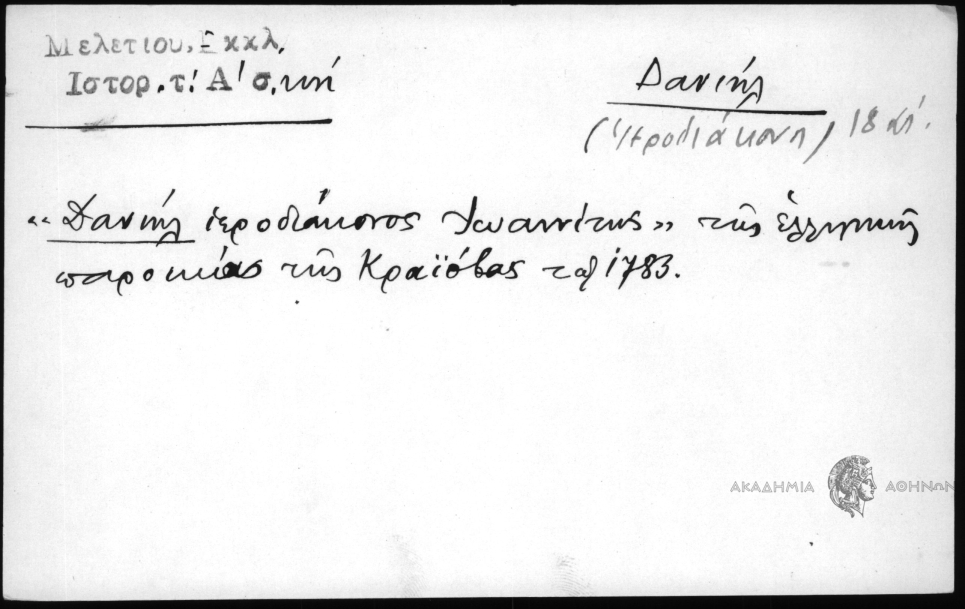 Μελετίου, Εκκλ.
Ιστορ. τ. Α' σ. κη
Δανιήλ
(Ιεροδιάκονος) 18 αι.
«Δανιήλ ιεροδιάκονος Ιωαννίτης» τῆς ἑλληνικῆς
παροικίας τῆς Κραϊόβας τῷ 1783.
ΑΚΑΔΗΜΙΑ ΑΘΗΝΩΝ